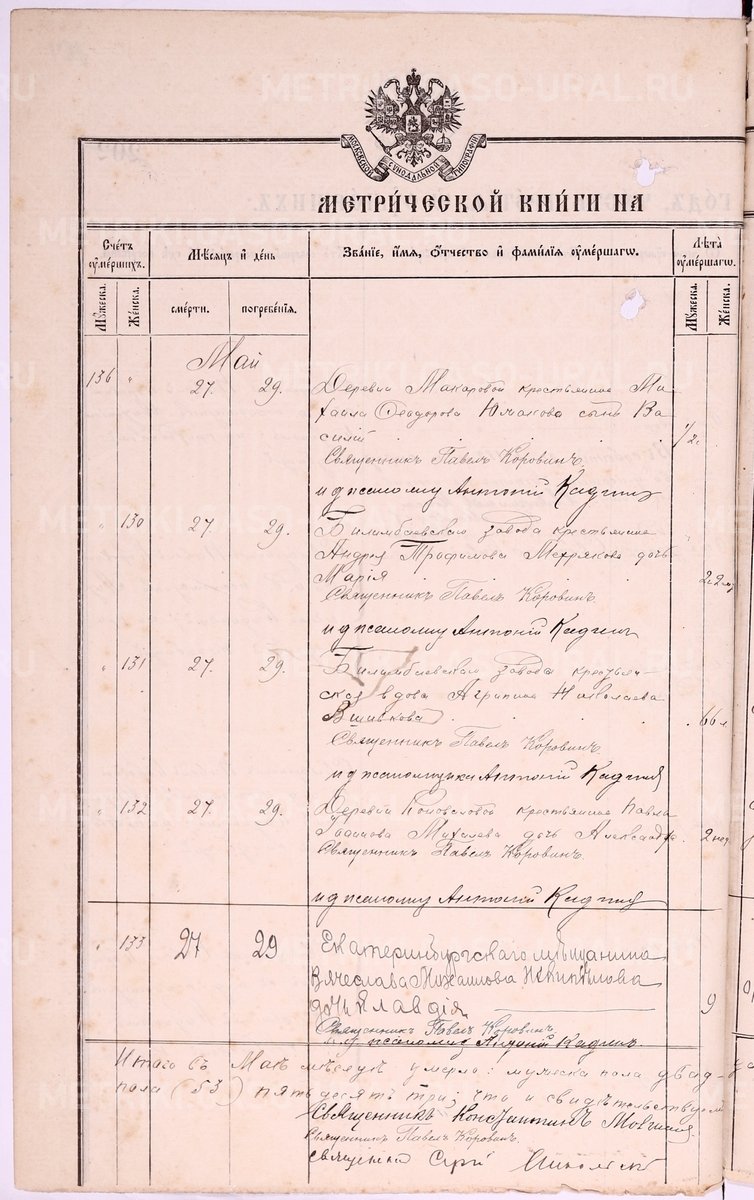 METRIKI.GASO-URAL.RU
МОСКОВСКОЙ СѴНОДАЛЬНОЙ ТИПОГРАФІИ
МЕТРИ́ЧЕСКОЙ КНИ́ГИ НА
Счетъ ѹме́ршихъ.
Мѣ́сѧцъ и҆ де́нь
Зва́нїе, и҆́мѧ, ѻ҆́тчество и҆ фами́лїѧ ѹ҆ме́ршагѡ.
Лѣ́та ѹ҆ме́ршагѡ.
Мꙋ́жеска. Же́нска.
сме́рти. погребе́нїѧ.
Мꙋ́жеска. Же́нска.
Май
136 " 27. 29. Деревни Макаровой крестьянина Ми
хаила Ѳеодорова Юмакова сынъ Ва
силій
Священникъ Павелъ Коровинъ.
и д псаломщ Антоній Кадчин
" 130 27. 29. Билимбаевскаго завода крестьянина
Андрея Трофимова Мехрякова дочь
Марія 2 г 2 м
Священникъ Павелъ Коровинъ.
и д псаломщ Антоній Кадчин
" 131 27. 29. Билимбаевскаго завода крестьян-
ская вдова Агрипина Николаева
Вшивкова 66 л
Священникъ Павелъ Коровинъ.
и д псаломщика Антоній Кадчин
" 132 27. 29. Деревни Коноваловой крестьянина Павла
Михалева дочь Александра 2 нед
Священникъ Павелъ Коровинъ.
и д псаломщ Антоній Кадчин
" 133 27 29 Екатеринбургскаго мѣщанина
Вячеслава Михаилова
дочь Клавдія 9
Священникъ Павелъ Коровинъ.
и д псаломщ Антоній Кадчин
Итого въ Маѣ мѣсяцѣ умерло: мужеска пола
пола (53) пятьдесятъ три; что и свидѣтельствуемъ
Священникъ Константинъ
Священникъ Павелъ Коровинъ.
священник